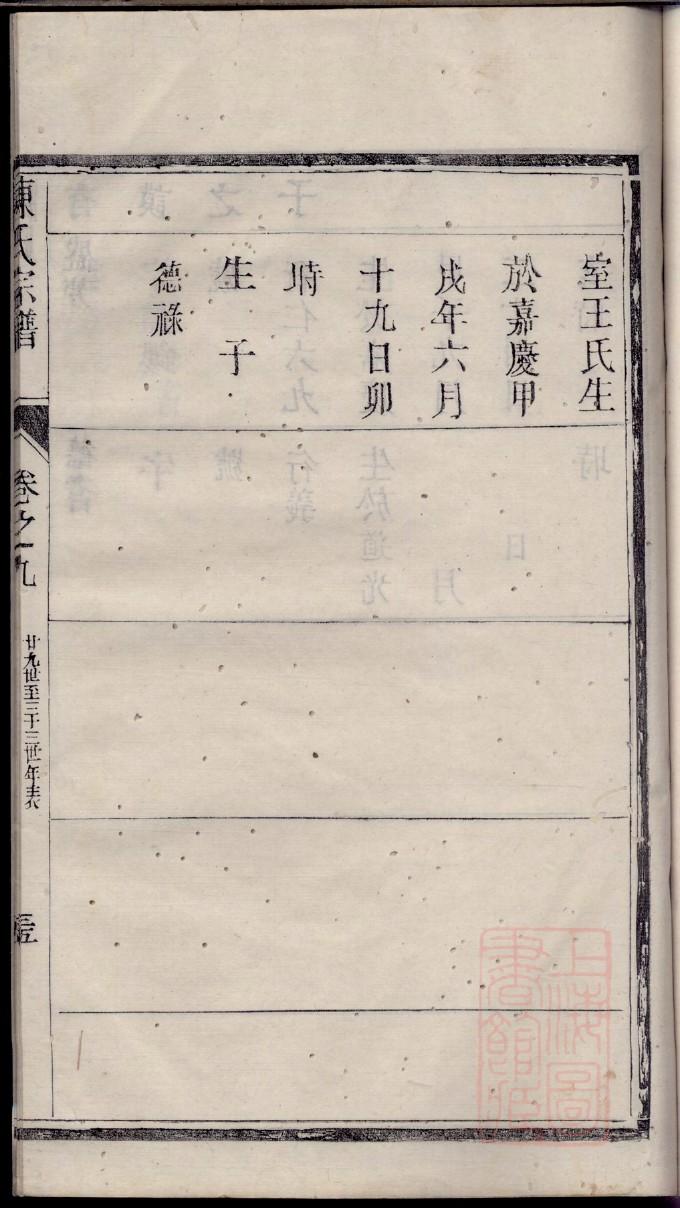 室王氏生
於嘉慶甲
戌年六月
十九日卯
時
生子
德祿
陳氏宗譜
卷之九
廿九世至三十三世年表
上海圖
書館藏